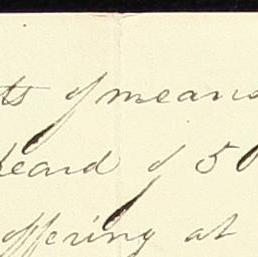 ts of means
heard of 50
offering at